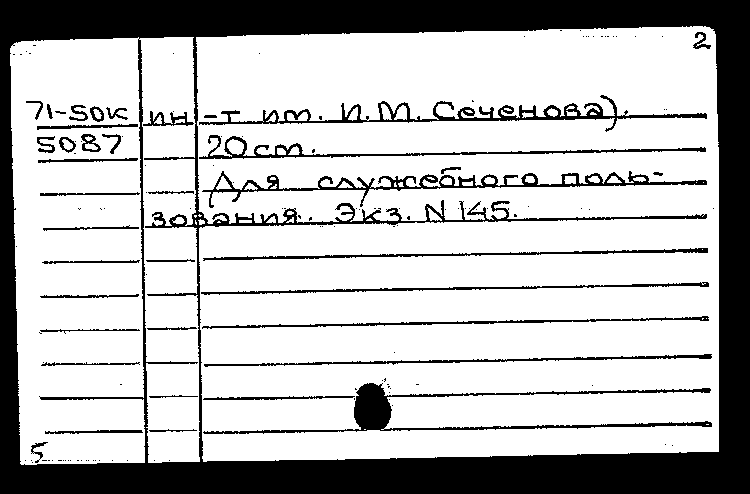 2
71-50к ин-т им. И.М. Сеченова).
5087 20 см.
Для служебного поль-
зования. Экз. N 145.
5